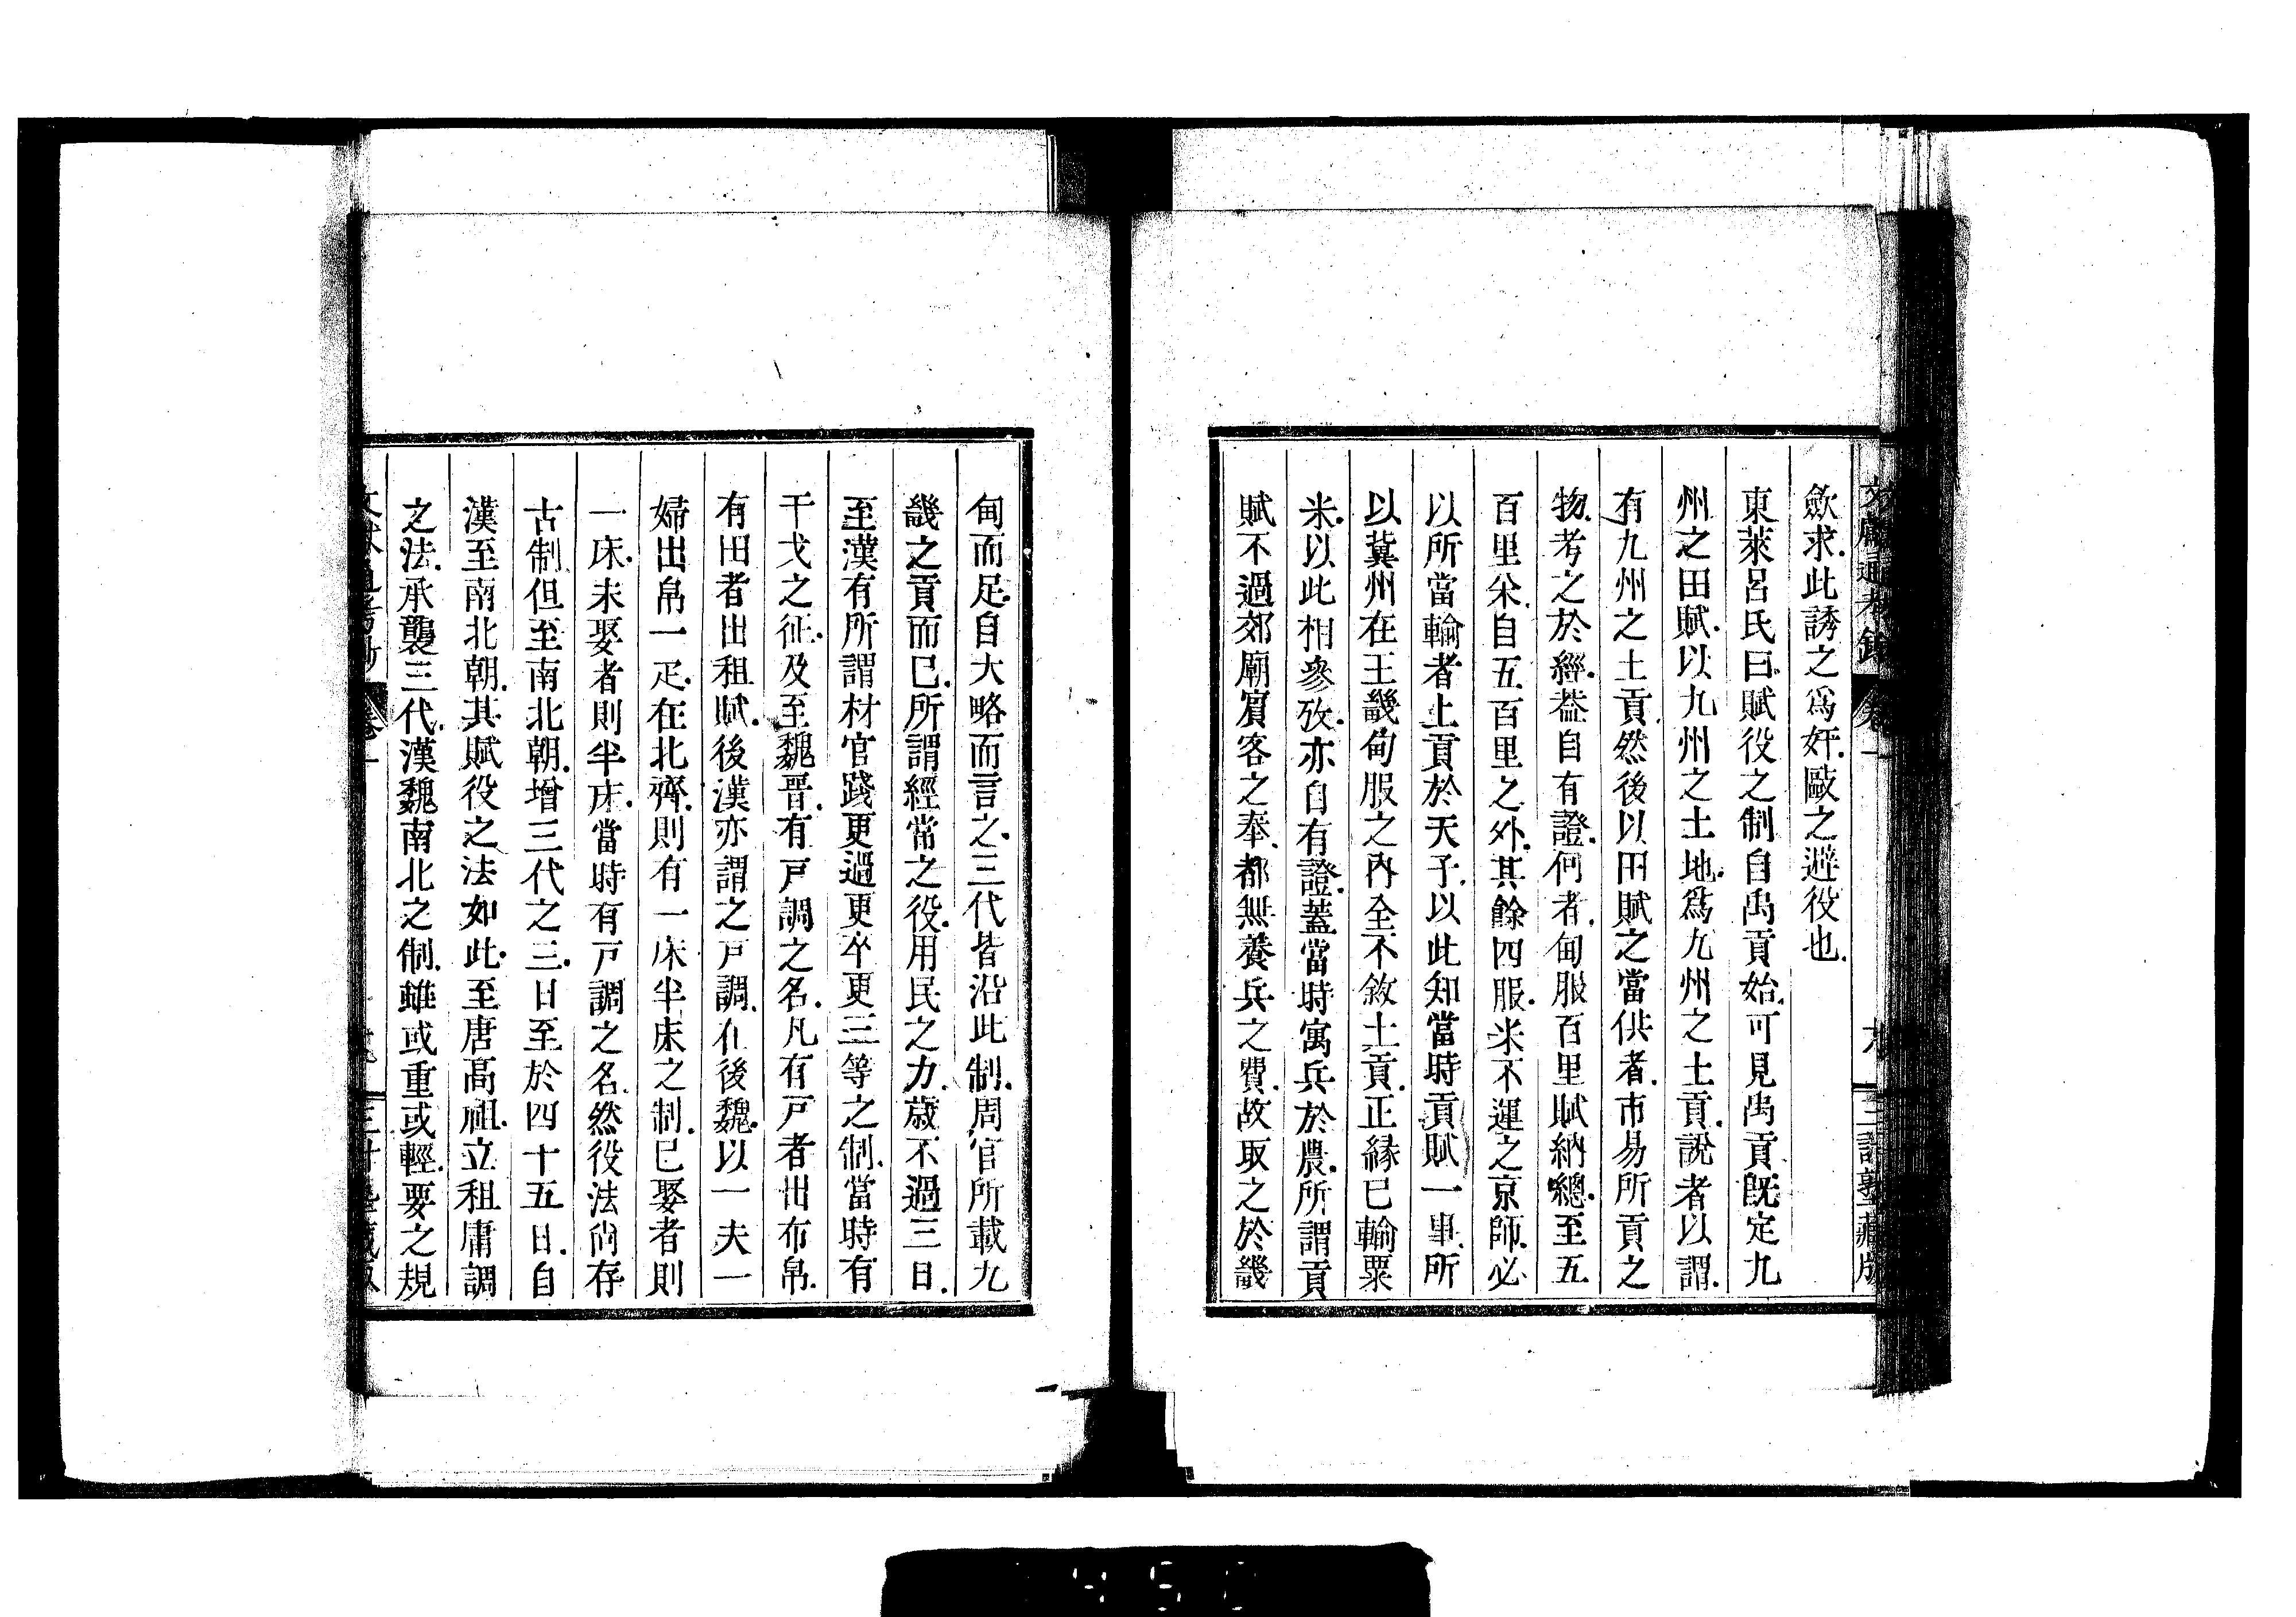 歛求此誘之爲奸敺之避役也
東萊呂氏曰賦役之制自禹貢始可見禹貢旣定九
州之田賦以九州之土地爲九州之土貢說者以謂
有九州之土貢然後以田賦之當供者市易所貢之
物考之於經葢自有證何者甸服百里賦納總至五
百里米自五百里之外其餘四服米不運之京師必
以所當輸者上貢於天子以此知當時貢賦一事所
以冀州在王畿甸服之內全不敘土貢正緣已輸粟
米以此相參攷亦自有證蓋當時寓兵於農所謂貢
賦不過郊廟賓客之奉都無養兵之費故取之於畿
甸而足自大略而言之三代皆沿此制周官所載九
畿之貢而已所謂經常之役用民之力歲不過三日
至漢有所謂材官踐更過更卒更三等之制當時有
干戈之征及至魏晋有戸調之名凡有戸者出布帛
有田者出租賦後漢亦謂之戸調在後魏以一夫一
婦出帛一疋在北齊則有一床半床之制已娶者則
一床未娶者則半床當時有戸調之名然役法尙存
古制但至南北朝增三代之三日至於四十五日自
漢至南北朝其賦役之法如此至唐高祖立租庸調
之法承襲三代漢魏南北之制雖或重或輕要之規